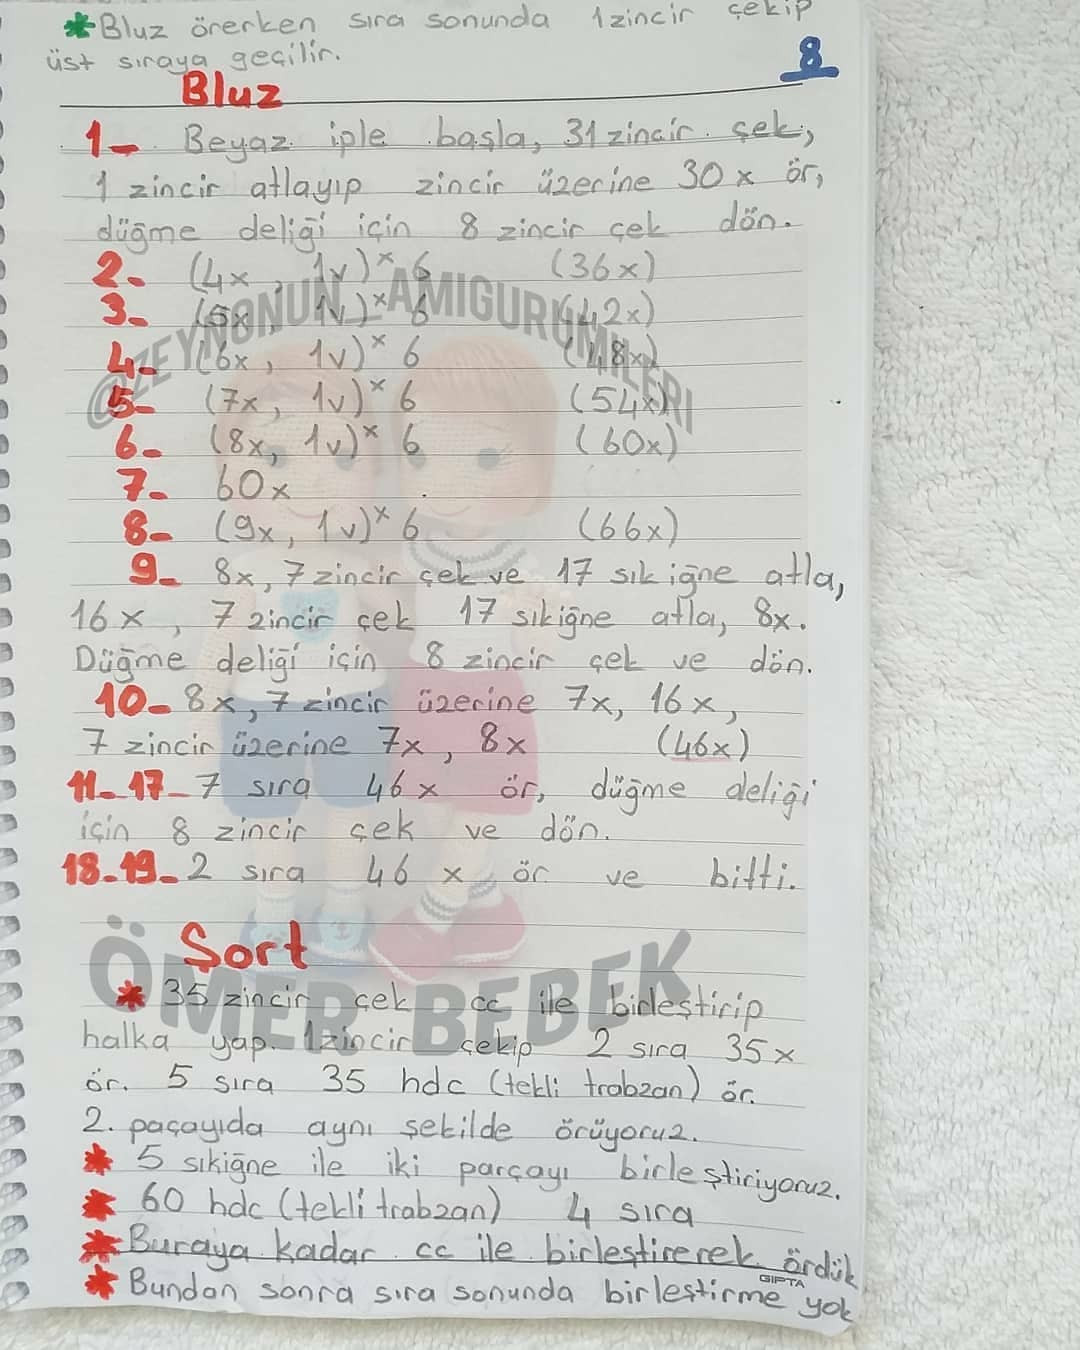 *Bluz örerken sıra sonunda 1 zincir çekip
üst sıraya geçilir.
8
Bluz
1- Beyaz iple başla, 31 zincir çek,
1 zincir atlayıp zincir üzerine 30 x ör,
düğme deliği için 8 zincir çek dön.
2- (4x, 1v)ˣ 6 (36x)
3- (5x, 1v)ˣ 6 (42x)
4- (6x, 1v)ˣ 6 (48x)
5- (7x, 1v)ˣ 6 (54x)
6- (8x, 1v)ˣ 6 (60x)
7- 60x
8- (9x, 1v)ˣ 6 (66x)
9- 8x, 7 zincir çek ve 17 sık iğne atla,
16x, 7 zincir çek 17 sıkiğne atla, 8x.
Düğme deliği için 8 zincir çek ve dön.
10- 8x, 7 zincir üzerine 7x, 16x,
7 zincir üzerine 7x, 8x (46x)
11-17- 7 sıra 46x ör, düğme deliği
için 8 zincir çek ve dön.
18-19- 2 sıra 46 x ör ve bitti.
@ZEYNONUN_AMIGURUMILERI
Şort
ÖMER BEBEK
* 35 zincir çek cc ile birleştirip
halka yap. 1zincir çekip 2 sıra 35x
ör. 5 sıra 35 hdc (tekli trabzan) ör.
2. paçayıda aynı şekilde örüyoruz.
* 5 sıkiğne ile iki parçayı birleştiriyoruz.
* 60 hdc (tekli trabzan) 4 sıra
* Buraya kadar cc ile birleştirerek ördük
GIPTA
* Bundan sonra sıra sonunda birleştirme yok